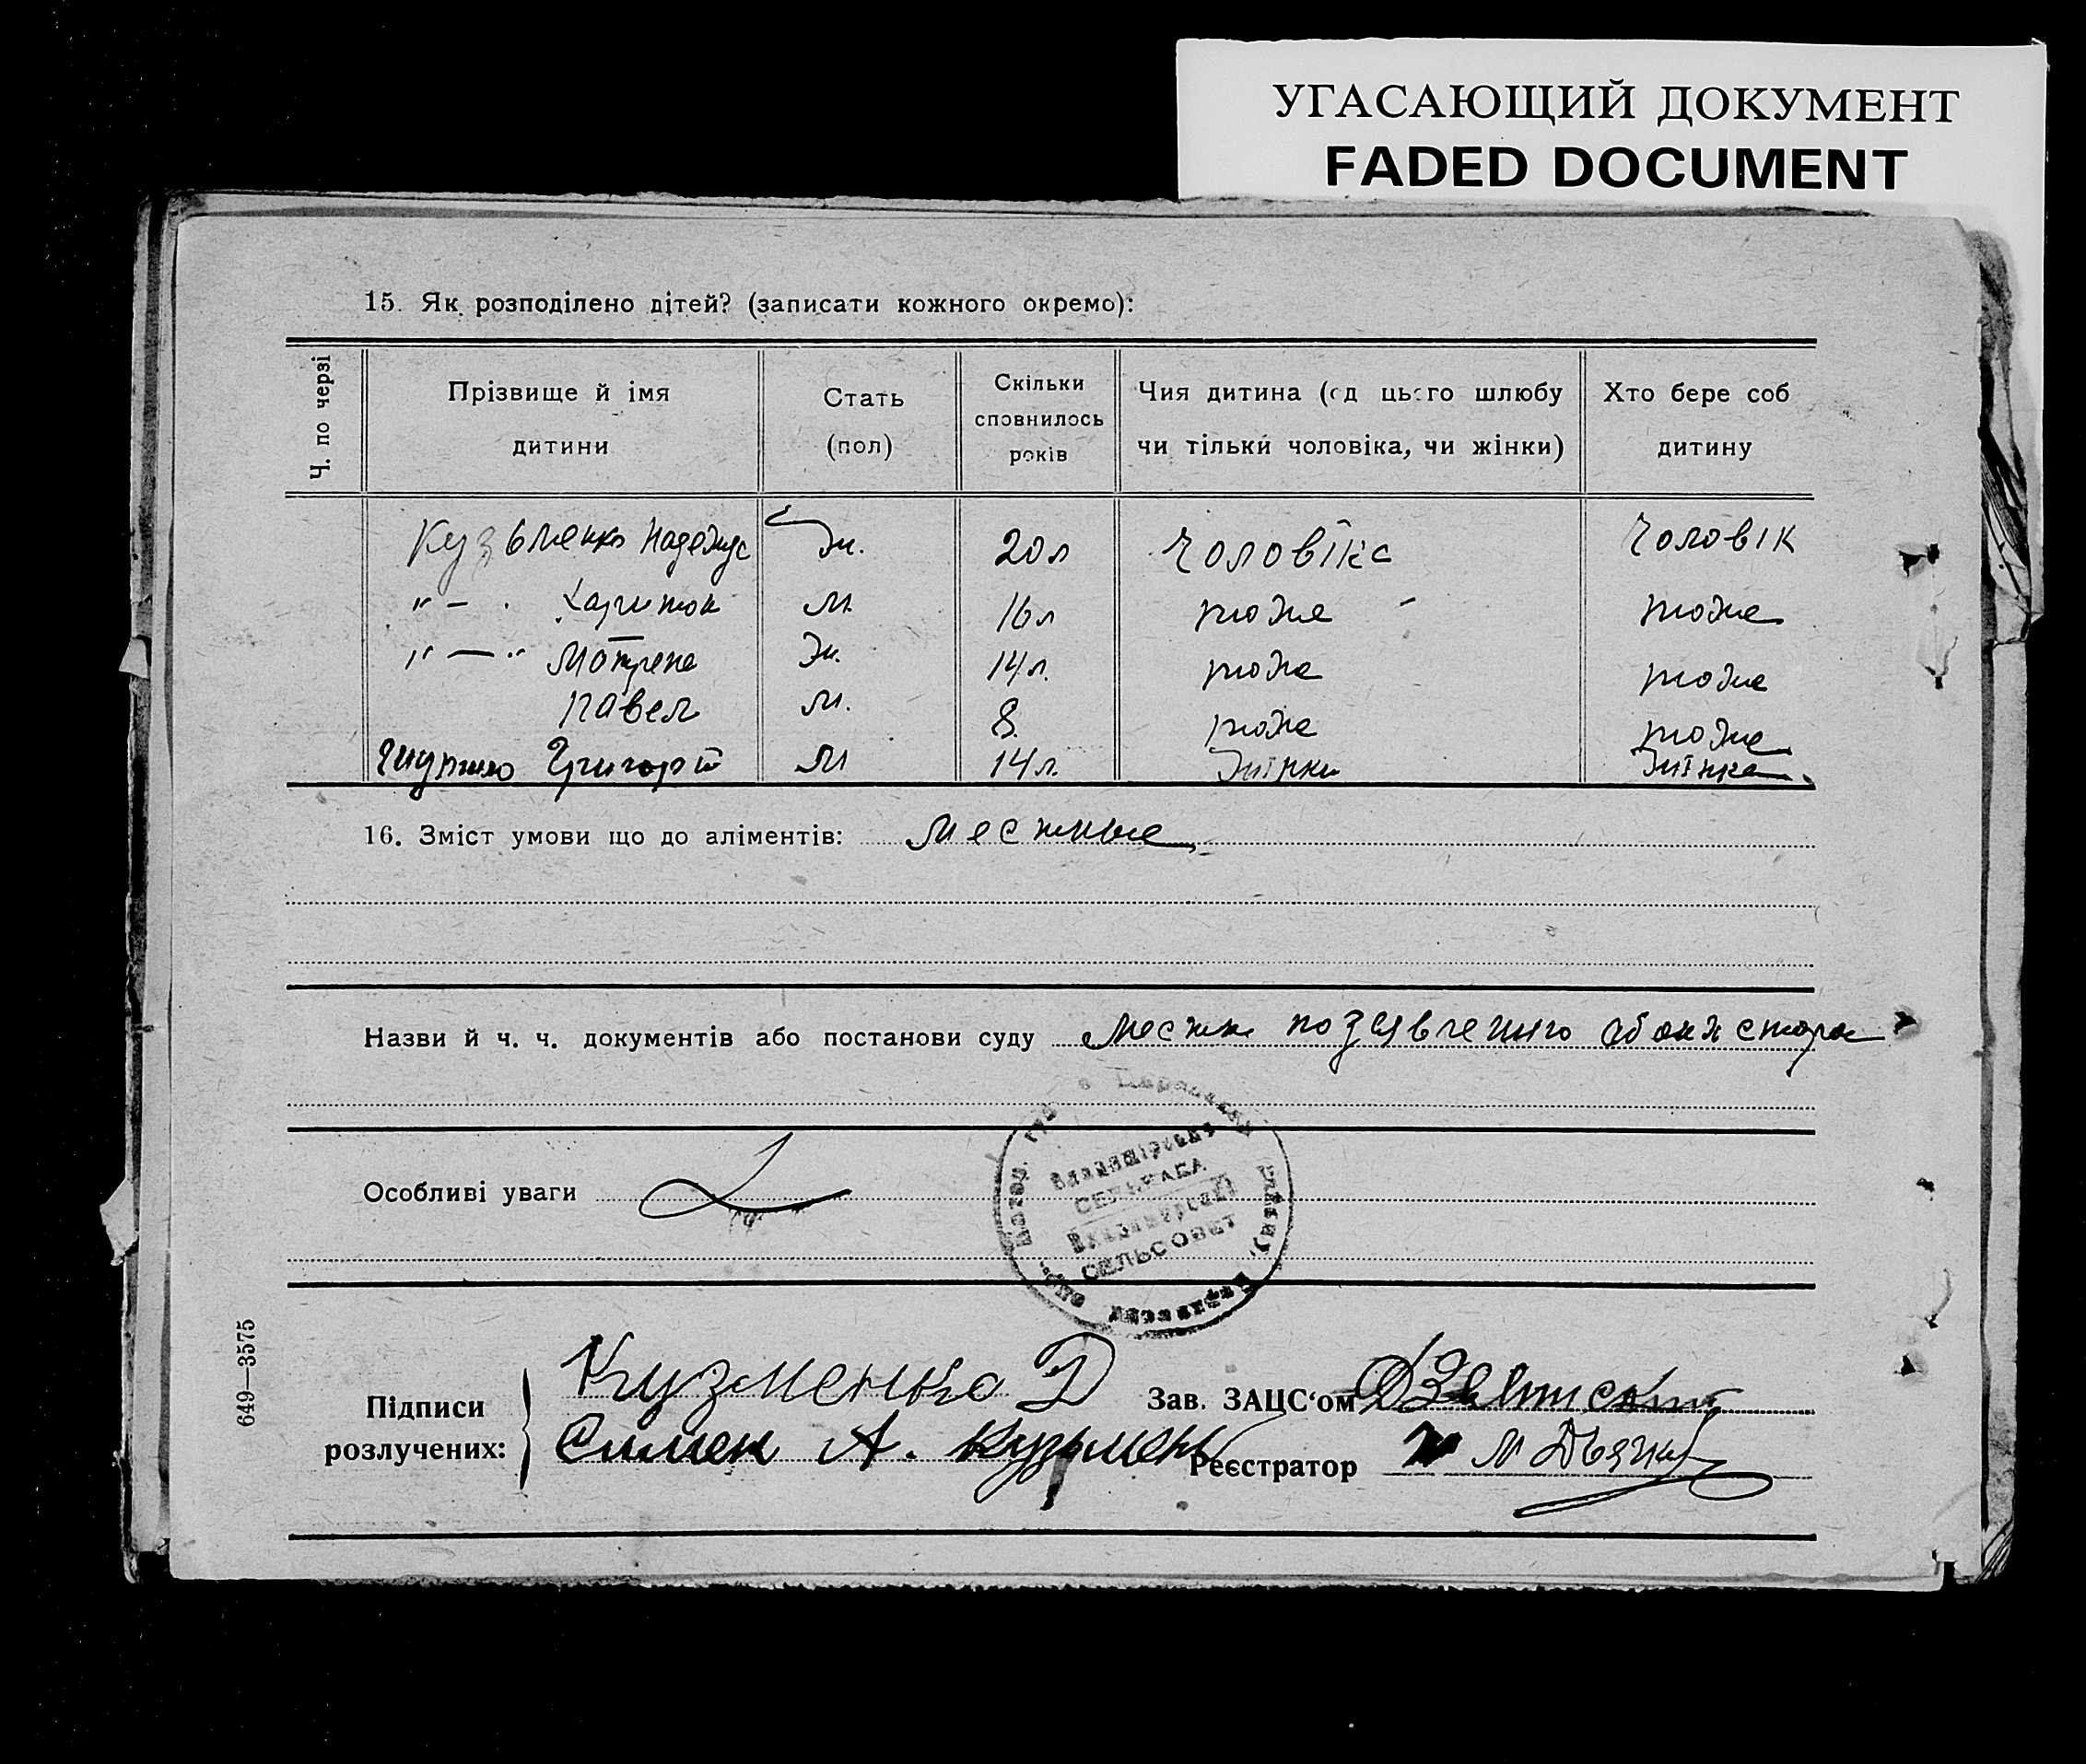 УГАСАЮЩИЙ ДОКУМЕНТ
FADED DOCUMENT
15. Як розподілено дітей? (записати кожного окремо):
Ч. по черзі
Прізвище й імя дитини
Стать (пол)
Скільки сповнилось років
Чия дитина (од цього шлюбу чи тільки чоловіка, чи жінки)
Хто бере соб дитину
Кузьменко Надежда ж. 20л чоловіка чоловік
"—" Харитон м. 16л тоже тоже
"—" Мотрена ж. 14л. тоже тоже
Павел м. 8. тоже тоже
Григорій м 14л. жінки жінка
16. Зміст умови що до аліментів: местные
Назви й ч. ч. документів або постанови суду
Особливі уваги
СЕЛЬРАДА
СЕЛЬСОВЕТ
649—3575
Підписи розлучених:
Кузменко Д
А. Кузьмен
Зав. ЗАЦС‘ом
Реєстратор